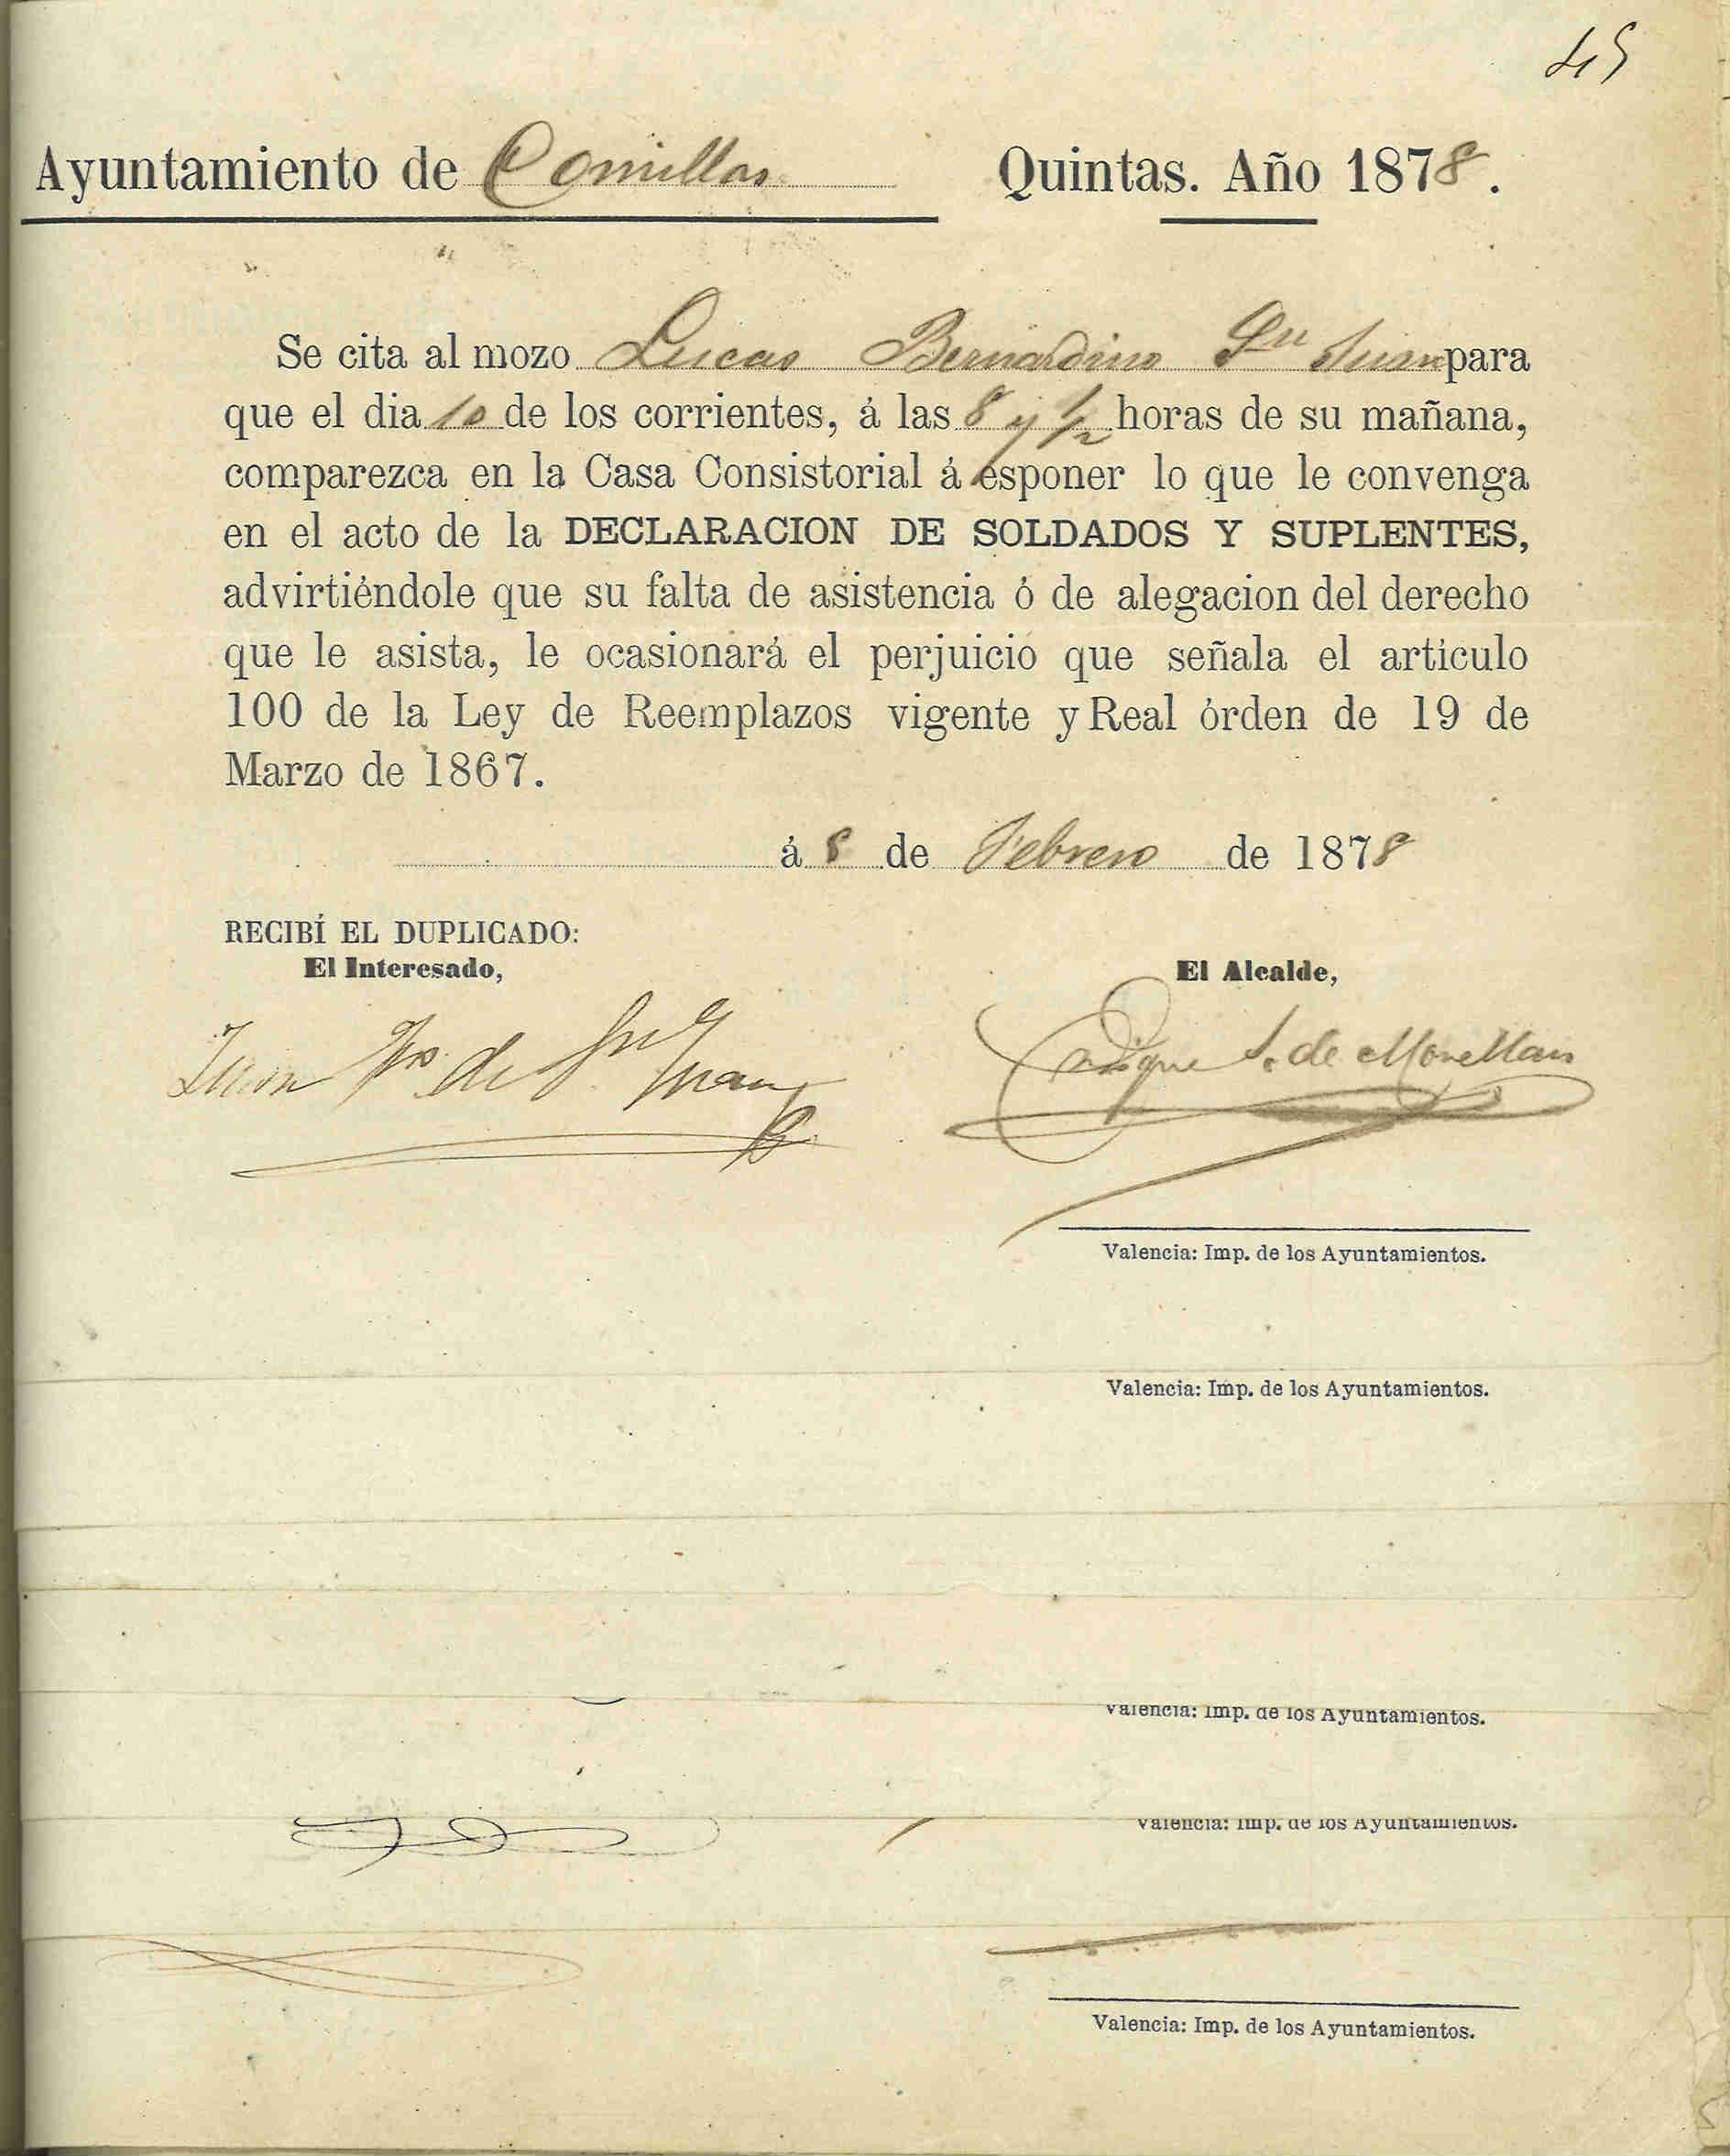 45
Ayuntamiento de Comillas Quintas. Año 1878.
Se cita al mozo Lucas Bernardino Sn Juan para
que el dia 10 de los corrientes, á las 8 y 1/2 horas de su mañana,
comparezca en la Casa Consistorial á esponer lo que le convenga
en el acto de la DECLARACION DE SOLDADOS Y SUPLENTES,
advirtiéndole que su falta de asistencia ó de alegacion del derecho
que le asista, le ocasionará el perjuicio que señala el artículo
100 de la Ley de Reemplazos vigente y Real órden de 19 de
Marzo de 1867.
á 8 de Febrero de 1878
RECIBÍ EL DUPLICADO:
El Interesado,
El Alcalde,
Juan de Sn Juan
S. de Movellan
Valencia: Imp. de los Ayuntamientos.
Valencia: Imp. de los Ayuntamientos.
Valencia: Imp. de los Ayuntamientos.
Valencia: Imp. de los Ayuntamientos.
Valencia: Imp. de los Ayuntamientos.